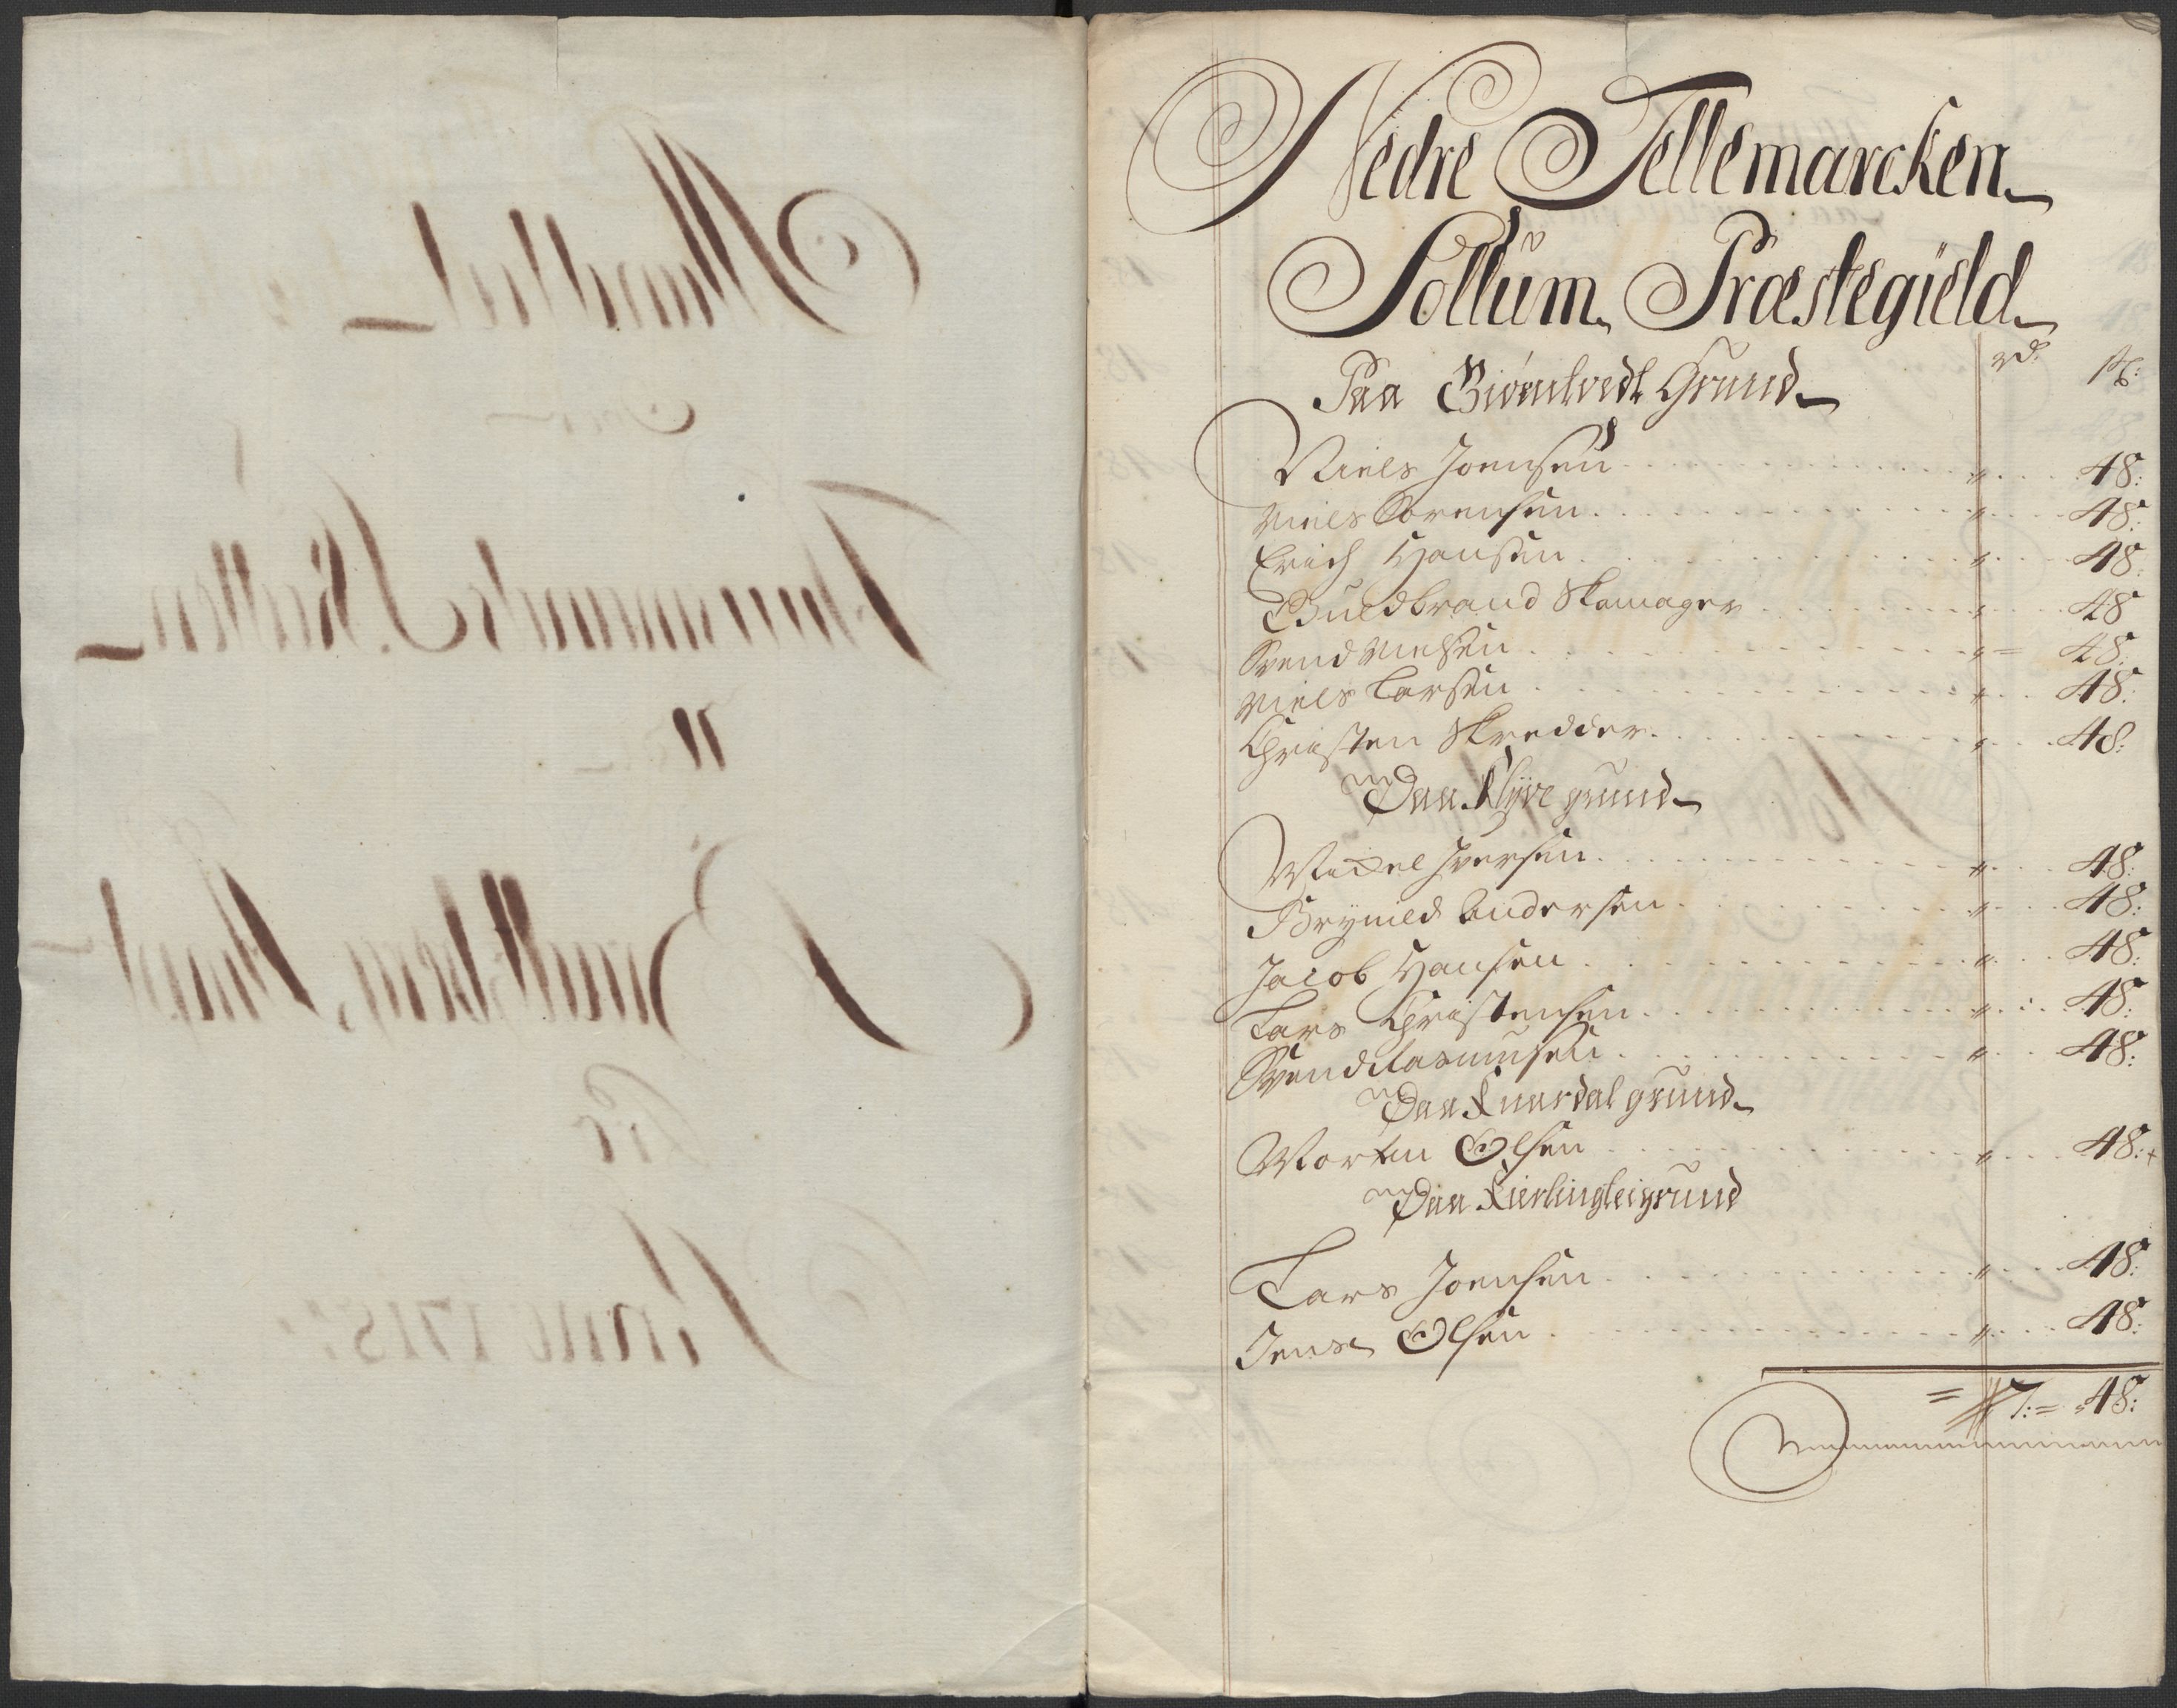 Nedre Tellemarcken
Sollum Præstegield
rd. sk:
Paa Biørntvedt Grund
Niels Joensen " 48:
Niels Sørensen " 48:
Erich Hansen " 48:
Guldbrand Skomager " 48
Svend Nielsen " 48:
Niels Larsen " 48:
Christen Skredder " 48:
Paa Klyve grund
Mickel Iversen " 48:
Brynild Andersen " 48:
Jacob Hansen " 48:
Lars Christensen " 48:
Svend Rasmusen " 48:
Paa Knardal grund
Morten Olsen " 48:
Paa Kierlingleigrund
Lars Joensen " 48:
Jens Olsen " 48:
= 7:= 48:
Anno 1715: